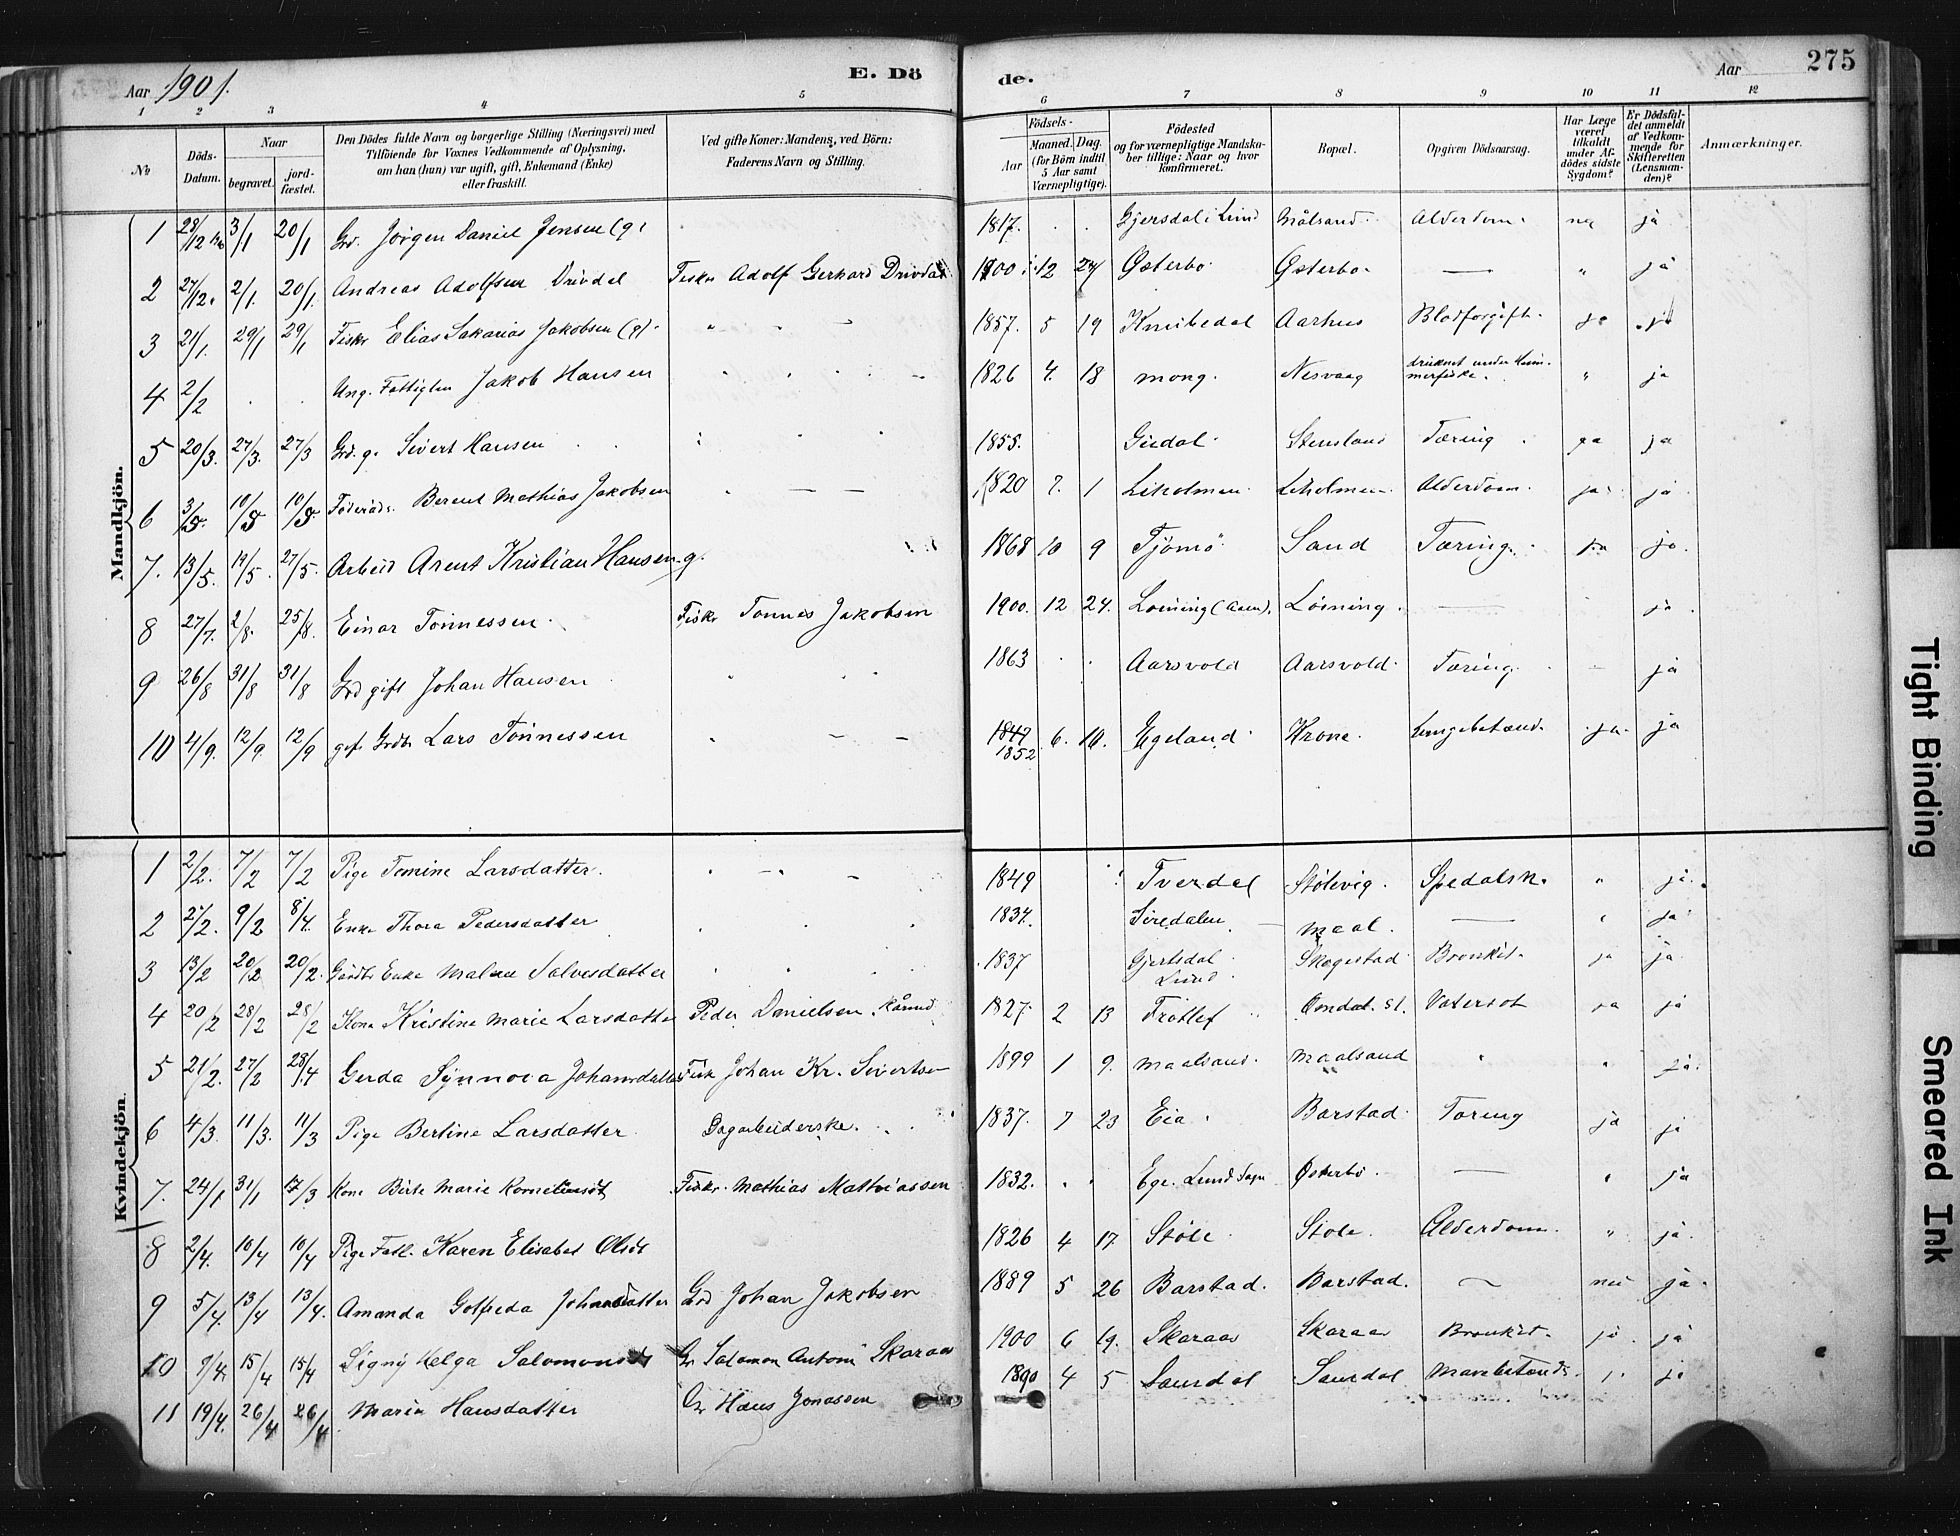 Aar 1901.
E. Dö
de.
Aar
275
1 2 3 4 5 6 7 8 9 10 11 12
No
Döds-Datum.
Naar
begravet.
jord-fæstet.
Den Dödes fulde Navn og borgerlige Stilling (Næringsvei) med
Tilföiende for Voxnes Vedkommende af Oplysning,
om han (hun) var ugift, gift, Enkemand (Enke)
eller fraskilt.
Ved gifte Koner: Mandens, ved Börn:
Faderens Navn og Stilling.
Födsels-
Aar
Maaned. Dag.
(for Börn indtil
5 Aar samt
Værnepligtige).
Födested
og for værnepligtige Mandska-
ber tillige: Naar og hvor
konfirmeret.
Bopæl.
Opgiven Dödsaarsag.
Har Læge
været
tilkaldt
under Af-
dödes sidste
Sygdom?
Er Dödsfal-
det anmeldt
af Vedkom-
mende for
Skifteretten
(Lensman-
den)?
Anmærkninger.
Mandkjön.
1 28/12 3/1 20/1 Grd. Jörgen Daniel Jensen (g) 1817. Gjersdal i Lund Målsand Alderdom. nei ja
2 27/12. 2/1. 20/1. Andreas Adolfsen Drivdal Fisker Adolf Gerhard Drivdal 1900 12 27 Østerbö Østerbö — " ja
3 21/1. 29/1 29/1 Fiskr Elias Sakarias Jakobsen (g) 1857. 5 19 Knubedal Aarhus Blodforgift. ja ja
4 2/2 Ung. Fattiglem Jakob Hansen 1826 4. 18 mong. Nesvaag druknet under Hummerfiske. " ja
5 20/3. 27/3. 27/3 Grd. g. Sivert Hansen 1855. Gudal Stensland Tæring ja ja
6 3/5. 10/5 10/5. Föderåds. Berent Mathias Jakobsen 1820 7. 1 Liholmen Liholmen Alderdom. ja ja
7. 13/5. 19/5. 27/5. Arbeid Arent Kristian Hansen g. 1868 10 9 Tjömö Sand Tæring. ja ja.
8 27/7. 2/8. 25/8. Einar Tönnessen. Fiskr Tönnes Jakobsen 1900. 12 24. Löining (Aaen). Löining. — ja
9 26/8 31/8 31/8 Grd gift Johan Hansen 1863 Aarsvold Aarsvold Tæring. — ja
10 4/9. 12/9. 12/9 gift Grdbr Lars Tönnessen 1847 1852 6. 10. Egeland Krone. Lungebetænd. ja. ja
Kvindekjön.
1 2/2. 7/2 7/2 Pige Tomine Larsdatter. 1849 Tverdal Stölevig. Spedalsk. " ja.
2 2/2. 9/2 8/4. Enke Thora Pedersdatter 1834. Siredalen maal. — " ja
3 13/2 20/2 20/2. Gårdbr Enke Malene Salvesdatter 1837 Gjersdal Lund Skogestad Bronkit. ja ja
4 20/2 28/2 28/2 Kone Kristine Marie Larsdatter Peder Danielsen 1827. 2 13 Frötlef Omdal. st. Vatersot ja ja
5 21/2. 27/2 28/4 Gerda Synnova Johansdatter Fisk Johan Kr. Sivertsen 1899 1 9. maalsand. maalsand " " ja.
6 4/3. 11/3. 11/3 Pige Bertine Larsdatter Dagarbeiderske. 1837. 7 23 Eia Barstad Tæring ja ja
7. 24/1 31/1 17/3 Kone Birte Marie Fiskr. Mathias Mathiassen 1832. Ege. Lund Sogn Østerbö. — " ja
8 2/4. 10/4 10/4 Pige Fatl. Karen Elisabet Olsdt 1826 4 17 Stöle Stöle. Alderdom. " ja.
9 5/4. 13/4 13/4. Amanda Golfreda Johansdatter Grd Johan Jakobsen 1889 5 26 Barstad. Barstad. — nei ja
10 9/4. 15/4 15/4 Signy Helga Salomonsdt Gr. Salomon Antoni Skaraas 1900 6 19. Skaraas Skaraas Bronkit. ja. ja
11 19/4. 26/4 26/4 Maria Hansdatter Gr Hans Jonassen 1890 4 5 Saurdal Saurdal Mavebetænd. ja
Tight Binding
Smeared Ink